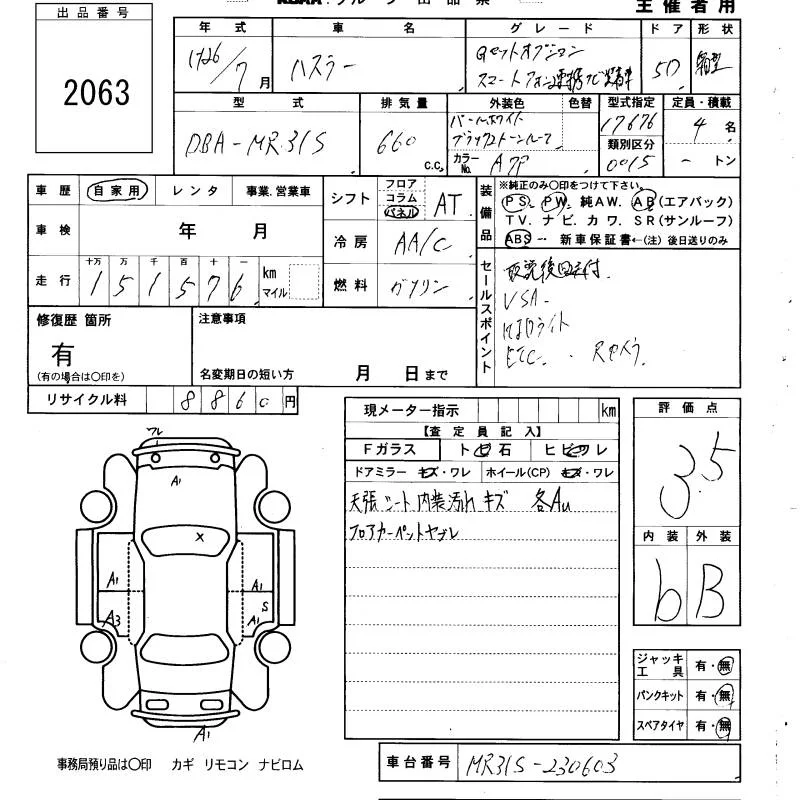 出品番号
2063
主催者用
年式 車名 グレード ドア 形状
H26/7月 ハスラー Gセットオプション 5D 箱型
スマートフォン連携ナビ装着車
型式 排気量 外装色 色替 型式指定 定員・積載
DBA-MR31S 660 c.c. パールホワイト 17676 4名
ブラック2トーンルーフ 類別区分
カラーNo. A7P 0015 ー トン
車歴 自家用 レンタ 事業.営業車
シフト フロア コラム パネル AT
装備品 ※純正のみ〇印をつけて下さい。
PS. PW. 純AW. AB(エアバック)
TV. ナビ. カワ. SR(サンルーフ)
ABS 新車保証書←(注)後日送りのみ
車検 年 月
冷房 AA/C
走行 十万 万 千 百 十 一
1 5 1 5 7 6 km マイル
燃料 ガソリン
セールスポイント
取説後日送付.
VSA.
HIDライト
ETC. ・Rカメラ.
修復歴 箇所
有
(有の場合は〇印を)
注意事項
名変期日の短い方 月 日まで
リサイクル料 8860円
現メーター指示 km
【査定員記入】
Fガラス トビ石 ヒビワレ
ドアミラー キズ・ワレ ホイール(CP) キズ・ワレ
天張 シート 内装汚れ キズ 各AU
フロアカーペットヤブレ
評価点
3.5
内装 外装
b B
フレ
A1
X
A1 A1
A3 S
A1
A1
ジャッキ工具 有・無
パンクキット 有・無
スペアタイヤ 有・無
事務局預り品は〇印 カギ リモコン ナビロム
車台番号 MR31S-230603